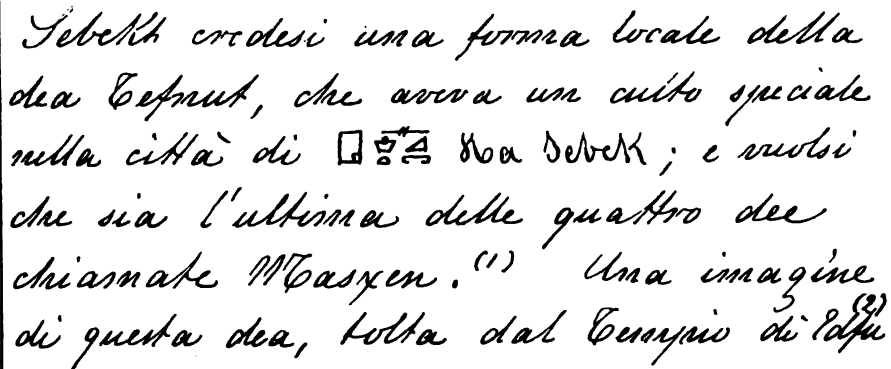 Sebekh credesi una forma locale della
dea Tefnut, che aveva un culto speciale
nella città di Ha Sebek; e vuolsi
che sia l'ultima delle quattro dee
chiamate Masχen.(1) Una imagine
di questa dea, tolta dal Tempio di Edfu(2)